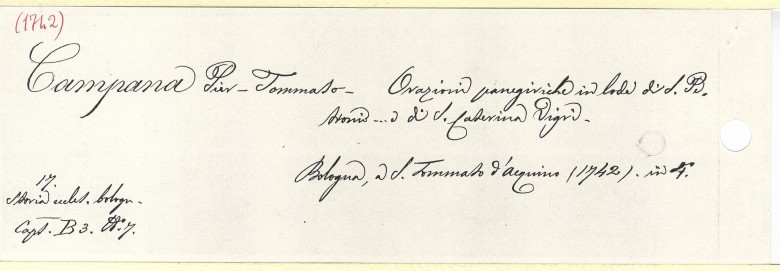 (1742)
Campana Pier-Tommaso- Orazioni panegiriche in lode di S. Pe-
tronio... e di S. Caterina Vigri-
Bologna, a S. Tommaso d'Aquino (1742). in 4.º
17.
Storia eccles. bologn.
Caps. B3. Nº. 7.